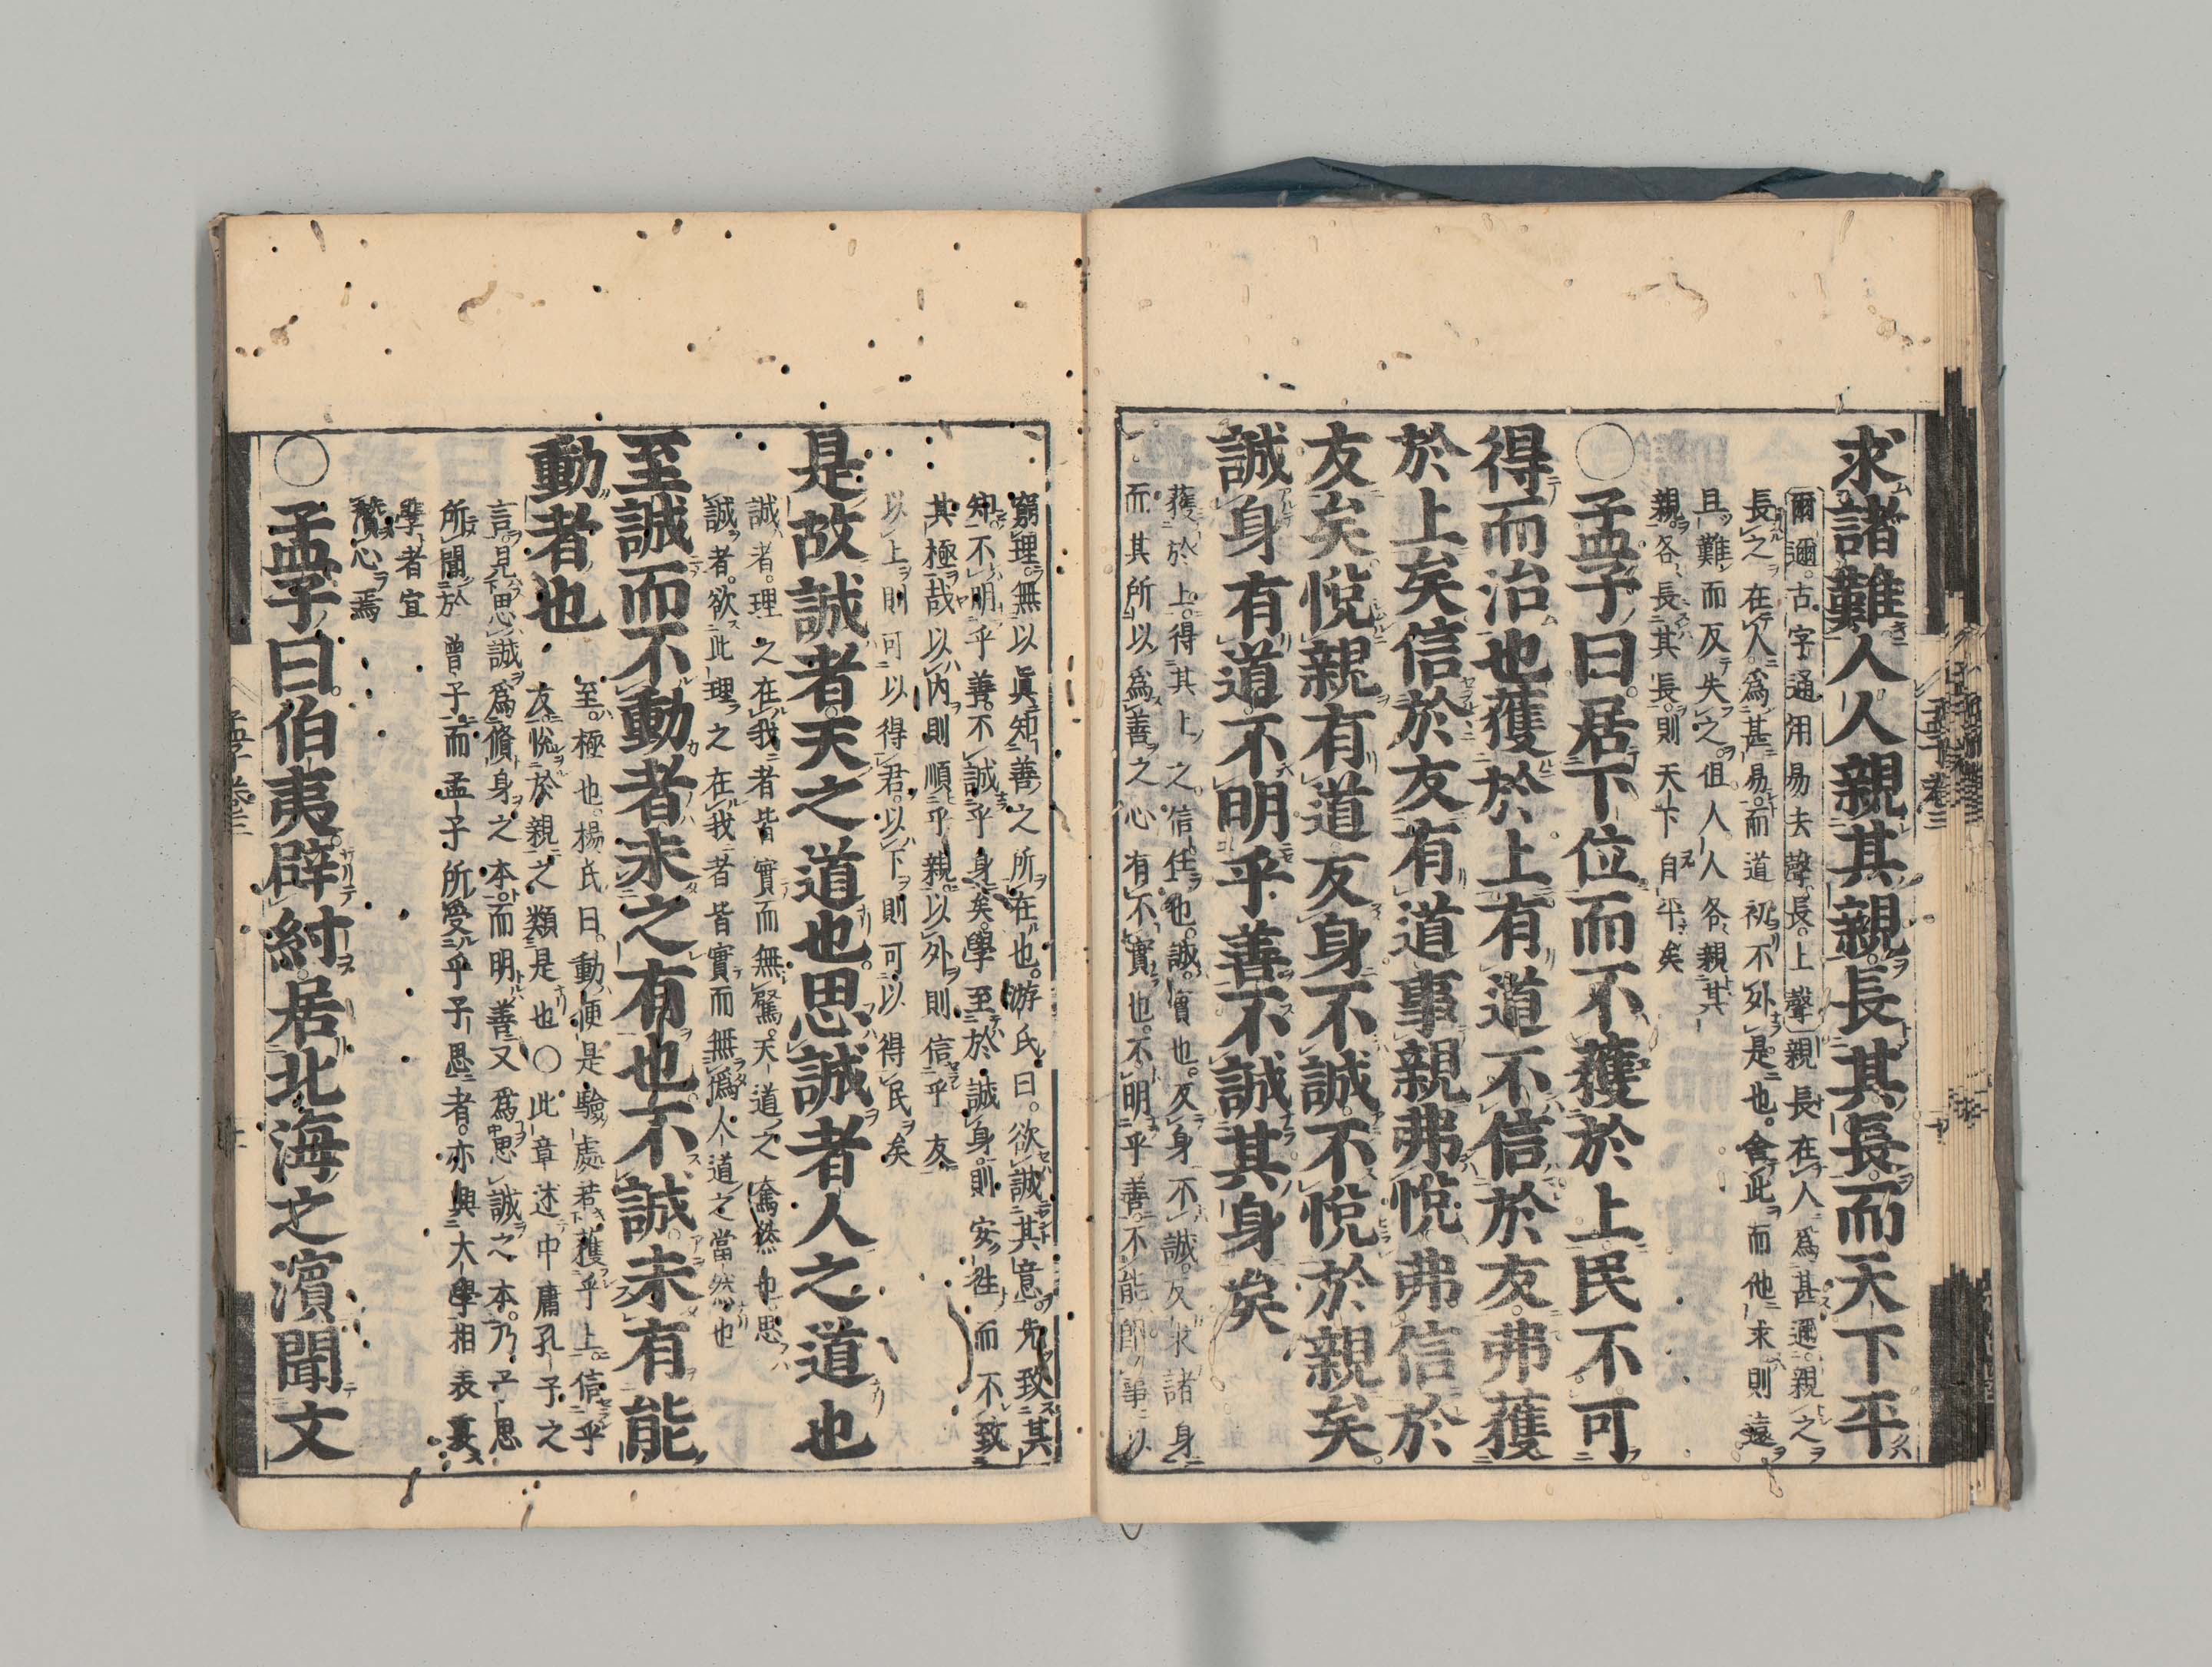 求諸難人人親其親長其長而天下平
爾邇古字通用易去聲長上聲親長在人爲甚邇親之
長之在人爲甚易而道初不外是也舍此而他求則遠
且難而反失之但人人各親其
親各長其長則天下自平矣
○孟子曰居下位而不獲於上民不可
得而治也獲於上有道不信於友弗獲
於上矣信於友有道事親弗悅弗信於
友矣悅親有道反身不誠不悅於親矣
誠身有道不明乎善不誠其身矣
獲於上得其上之信任也誠實也反身不誠反求諸身
而其所以爲善之心有不實也不明乎善不能即事以
窮理無以眞知善之所在也游氏曰欲誠其意先致其
知不明乎善不誠乎身矣學至於誠身則安往而不致
其極哉以內則順乎親以外則信乎友
以上則可以得君以下則可以得民矣
是故誠者天之道也思誠者人之道也
誠者理之在我者皆實而無僞天道之本然也思
誠者欲此理之在我者皆實而無僞人道之當然也
至誠而不動者未之有也不誠未有能
動者也
至極也楊氏曰動便是驗處若獲乎上信乎
友悅於親之類是也○此章述中庸孔子之
言見思誠爲脩身之本而明善又爲思誠之本乃子思
所聞於曾子而孟子所受乎子思者亦與大學相表裏
學者宜
潛心焉
○孟子曰伯夷辟紂居北海之濱聞文
孟子卷三